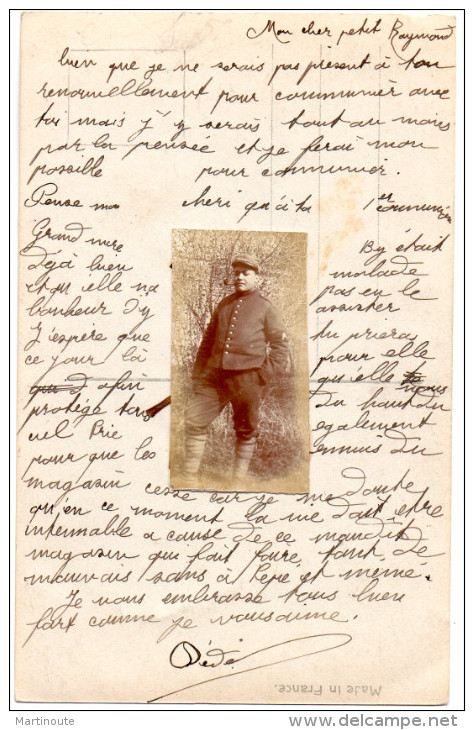 Mon cher petit Raymond
bien que je ne serais pas présent à ton
renouvellement pour communier avec
toi mais j'y serais tout au moins
par la pensée et je ferai mon
possible pour communier.
Pense mon cheri qu'à ta 1er communion
Grand mère By était
déjà bien malade
et qu'elle n'a pas eu le
bonheur d'y assister
J'espère que tu priera
ce jour là pour elle
afin qu'elle nous
protège tous du haut du
ciel Prie egalement
pour que les ennuis du
magasin cesse car je me doute
qu'en ce moment la vie doit être
intenable a cause de ce maudit
magasin qui fait faire tant de
mauvais sans à Pépé et mémé.
Je vous embrasse tous bien
fort comme je vous aime.
Dédé
Made in France.
Martinoute
www.delcampe.net